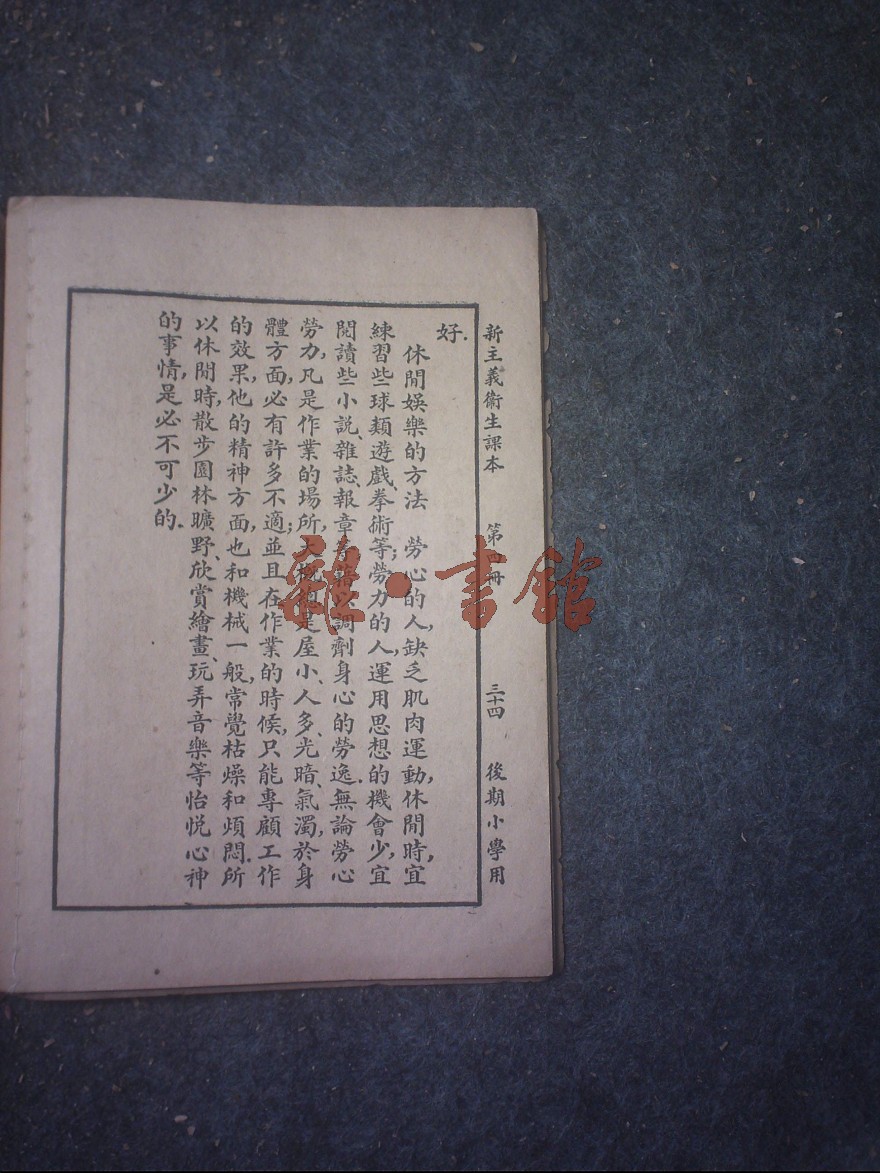 新主義衞生課本 第四冊 三十四 後期小學用
好.
休閒娛樂的方法 勞心的人,缺乏肌肉運動,休閒時,宜
練習些球類、遊戲、拳術等;勞力的人,運用思想的機會少,宜
閱讀些小說、雜誌、報章等,藉以調劑身心的勞逸.無論勞心
勞力,凡是作業的場所,大概總是屋小、人多、光暗、氣濁,於身
體方面,必有許多不適;並且在作業的時候,只能專顧工作
的效果,他的精神方面,也和機械一般,常覺枯燥和煩悶.所
以休閒時,散步園林曠野、欣賞繪畫、玩弄音樂等怡悅心神
的事情,是必不可少的.
雜·書館